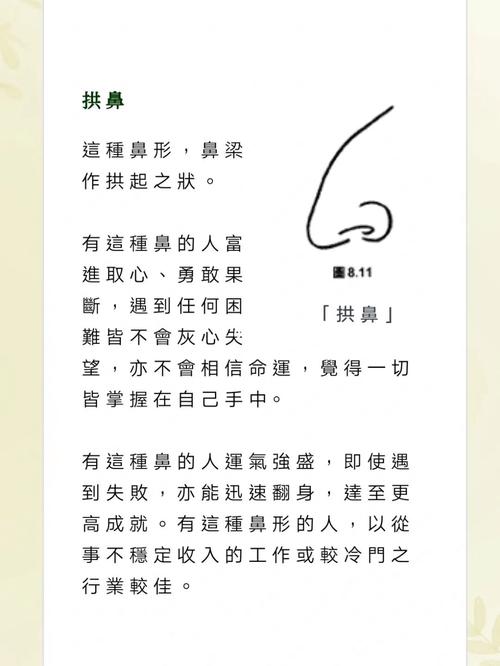 拱鼻
這種鼻形，鼻梁
作拱起之狀。
圖8.11
「拱鼻」
有這種鼻的人富
進取心、勇敢果
斷，遇到任何困
難皆不會灰心失
望，亦不會相信命運，覺得一切
皆掌握在自己手中。
有這種鼻的人運氣強盛，即使遇
到失敗，亦能迅速翻身，達至更
高成就。有這種鼻形的人，以從
事不穩定收入的工作或較冷門之
行業較佳。